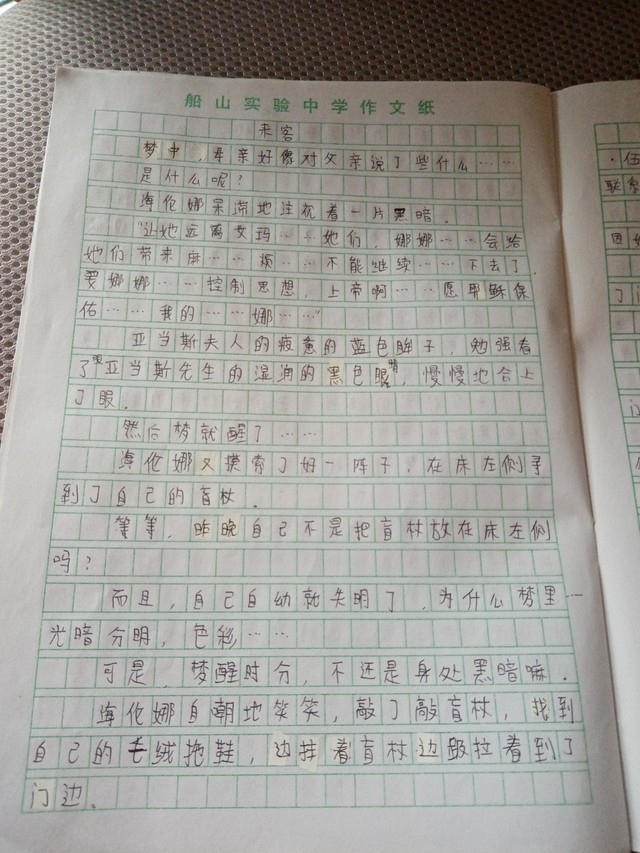 船山实验中学作文纸
来客
梦中，母亲好像对父亲说了些什么……
是什么呢？
海伦娜呆滞地注视着一片黑暗．
“让她远离艾玛……她们，娜娜……会给
她们带来麻……烦……不能继续……下去了．
要娜娜……控制思想，上帝啊……愿耶稣保
佑……我的……娜……”
亚当斯夫人的疲惫的蓝色眸子，勉强看
了眼亚当斯先生的湿润的黑色眼睛，慢慢地合上
了眼．
然后梦就醒了……
海伦娜又摸索了好一阵子，在床左侧寻
到了自己的盲杖．
等等，昨晚自己不是把盲杖放在床左侧
吗？
而且，自己自幼就失明了，为什么梦里…
光暗分明，色彩……
可是，梦醒时分，不还是身处黑暗嘛．
海伦娜自嘲地笑笑，敲了敲盲杖，找到
自己的毛绒拖鞋，边拄着盲杖边趿拉着到了
门边．
伍